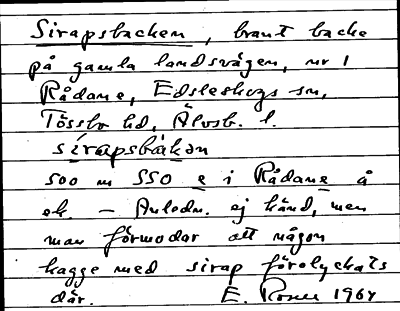 Sirapsbacken, brant backe
på gamla landsvägen, nr 1
Rådane, Edsleskogs sn,
Tössbo hd, Älvsb. l.
sirapsbakən
500 m SSO e i Rådane å
ek. - Anledn. ej känd, men
man förmodar att någon
kagge med sirap förolyckats
där. E. 1964